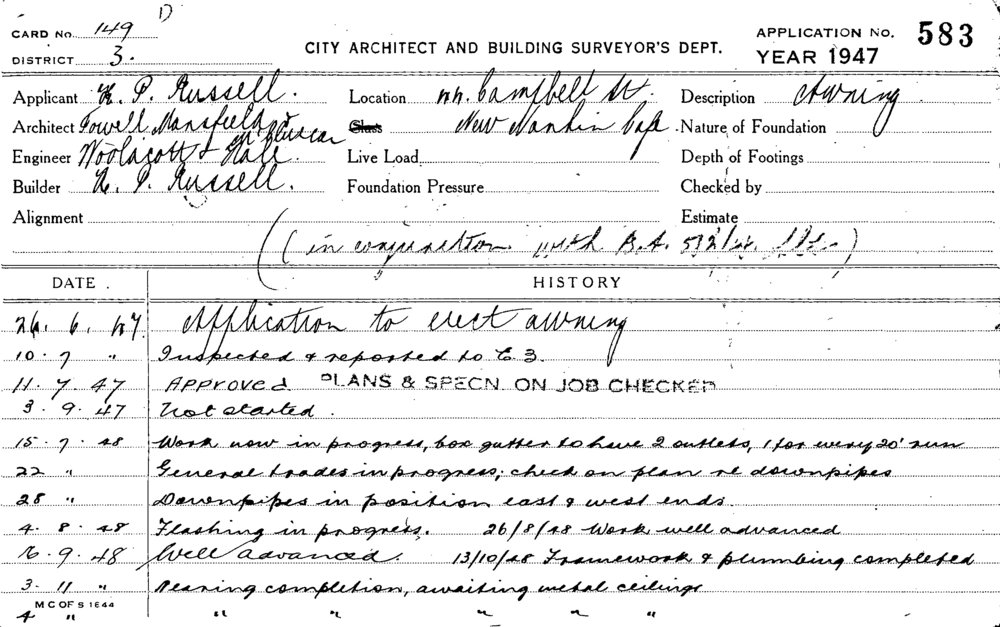 D
CARD No. 149
DISTRICT 3.
CITY ARCHITECT AND BUILDING SURVEYOR'S DEPT.
APPLICATION NO. 583
YEAR 1947
Applicant K. P. Russell. Location nn. Campbell St. Description Awning
Architect Fowell, Mansfield & McLurcan Class New Nankin Cafe. Nature of Foundation
Engineer Woolacott & Hale. Live Load Depth of Footings
Builder K. P. Russell. Foundation Pressure Checked by
Alignment Estimate
(in conjunction with B.A.
DATE. HISTORY
26. 6. 47. Application to erect awning
10. 7 " Inspected & reported to E 3.
11. 7. 47 APPROVED PLANS & SPECN. ON JOB CHECKED
3. 9. 47 Not started.
15. 7. 48 Work now in progress, box gutter to have 2 outlets, 1 for every 20' run
22 " General trades in progress; check on plan re downpipes
28 " Downpipes in position east & west ends
4. 8. 48 Flashing in progress. 26/8/48 Work well advanced
16. 9. 48 Well advanced. 13/10/48 Framework & plumbing completed
3. 11 " Nearing completion, awaiting metal ceilings
M C OF S 1644
4 " " " " " "